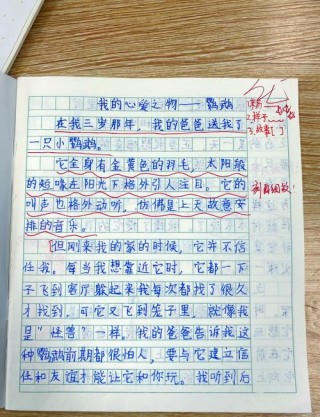 我的心爱之物——鹦鹉
在我三岁那年，我的爸爸送我了
一只小鹦鹉。
它全身有金黄色的羽毛，太阳般
的短喙在阳光下格外引人注目。它的
叫声也格外动听，仿佛是上天故意安
排的音乐。
但刚来我的家的时候，它并不信
任我。每当我想靠近它时，它都一下
子飞到客厅躲起来我每次都找了很久
才找到。可它又飞到笼子里，就像我
是“怪兽”一样。我的爸爸告诉我这
种鹦鹉前期都很怕人，要与它建立信
任和友谊才能让它和你玩。我听到后
2.样子
3.故事[ ]